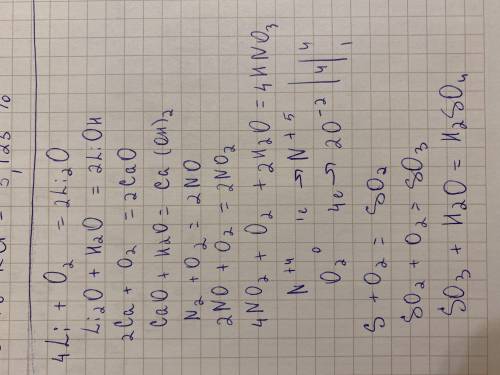 4Li + O₂ = 2Li₂O
Li₂O + H₂O = 2LiOH
2Ca + O₂ = 2CaO
CaO + H₂O = Ca(OH)₂
N₂ + O₂ = 2NO
2NO + O₂ = 2NO₂
4NO₂ + O₂ + 2H₂O = 4HNO₃
N⁺⁴ 1e → N⁺⁵ | 4
O₂⁰ 4e → 2O⁻² | 4 | 1
S + O₂ = SO₂
SO₂ + O₂ = SO₃
SO₃ + H₂O = H₂SO₄